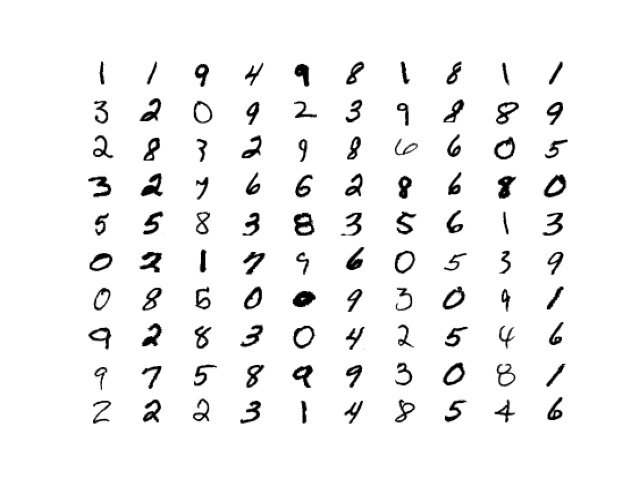 1 1 9 4 9 8 1 8 1 1
3 2 0 9 2 3 9 8 8 9
2 8 3 2 9 8 6 6 0 5
3 2 7 6 6 2 8 6 8 0
5 5 8 3 8 3 5 6 1 3
0 2 1 7 9 6 0 5 3 9
0 8 5 0 0 9 3 0 9 1
9 2 8 3 0 4 2 5 4 6
9 7 5 8 9 9 3 0 8 1
2 2 2 3 1 4 8 5 4 6